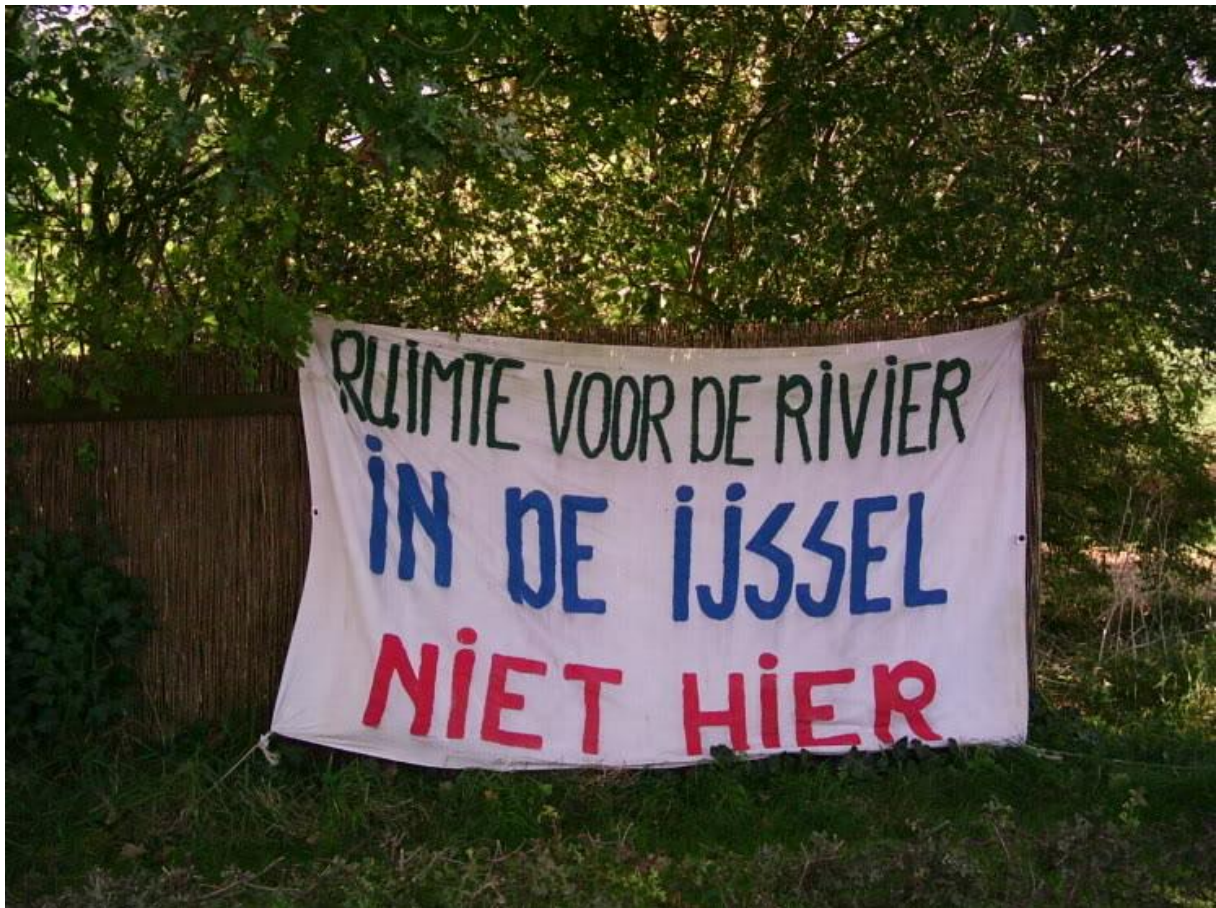 RUIMTE VOOR DE RIVIER
IN DE IJSSEL
NIET HIER